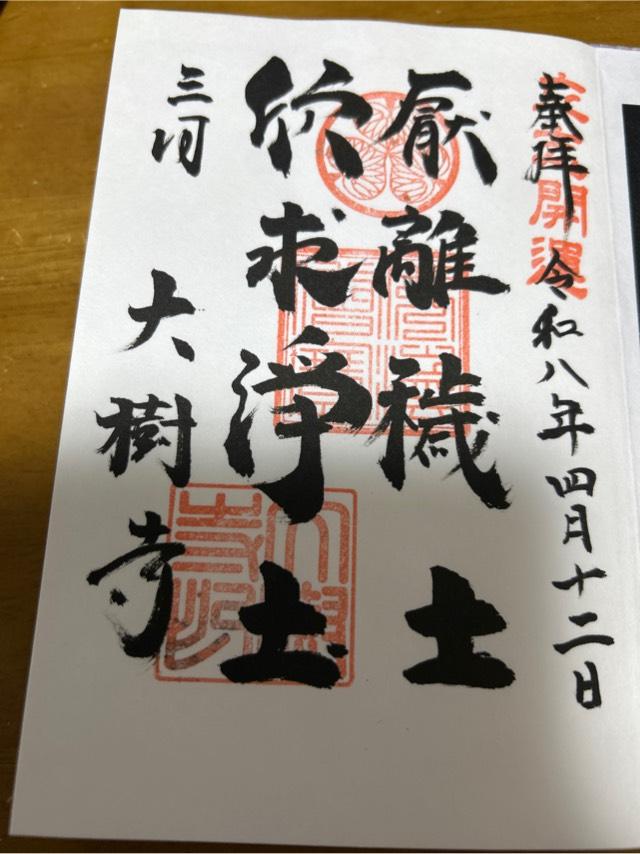 奉拝 令和八年四月十二日
厭離穢土
欣求浄土
三河 大樹寺
開運